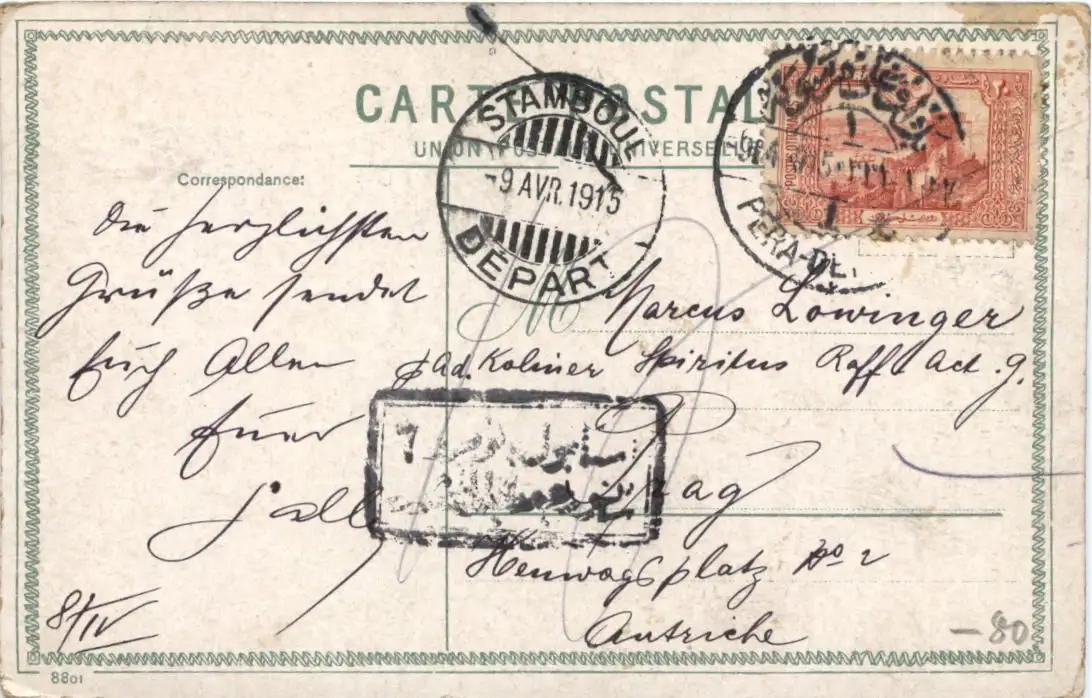 CARTE POSTALE
UNION POSTALE UNIVERSELLE
STAMBOUL
-9 AVR. 1915
DÉPART
PERA
1
1
Correspondance:
Die herzlichsten
Grüße sendet
Euch Allen
Euer
M
Marcus Löwinger
p Ad. Koliner Spiritus Raff. Act. g.
Prag
Heuwagsplatz No 2
Autriche
8/IV
-80
8801